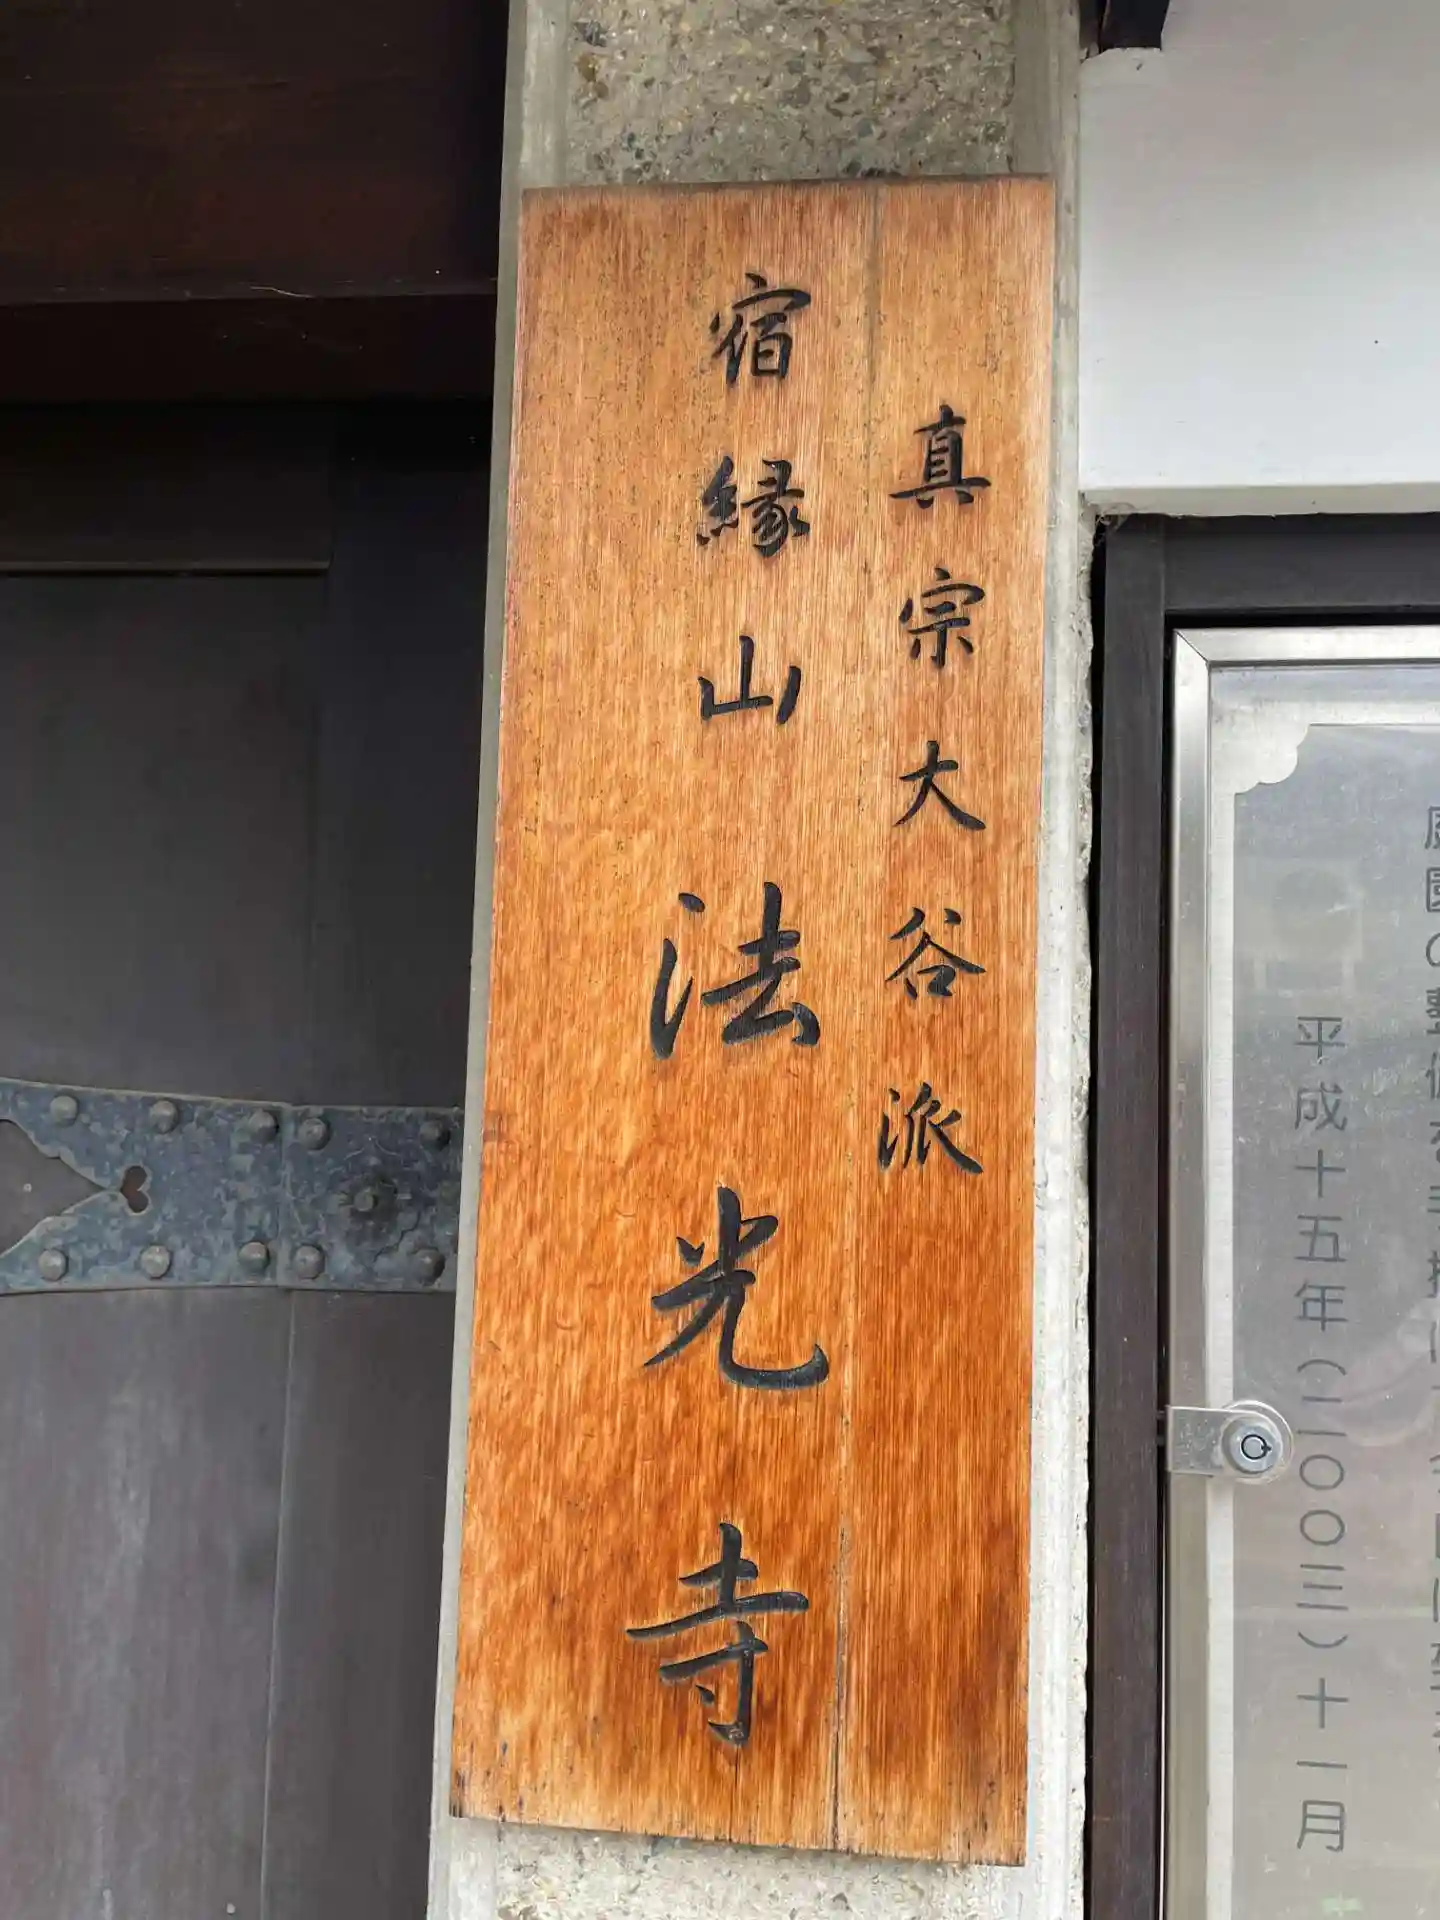 真宗大谷派
宿縁山法光寺
平成十五年(二〇〇三)十一月